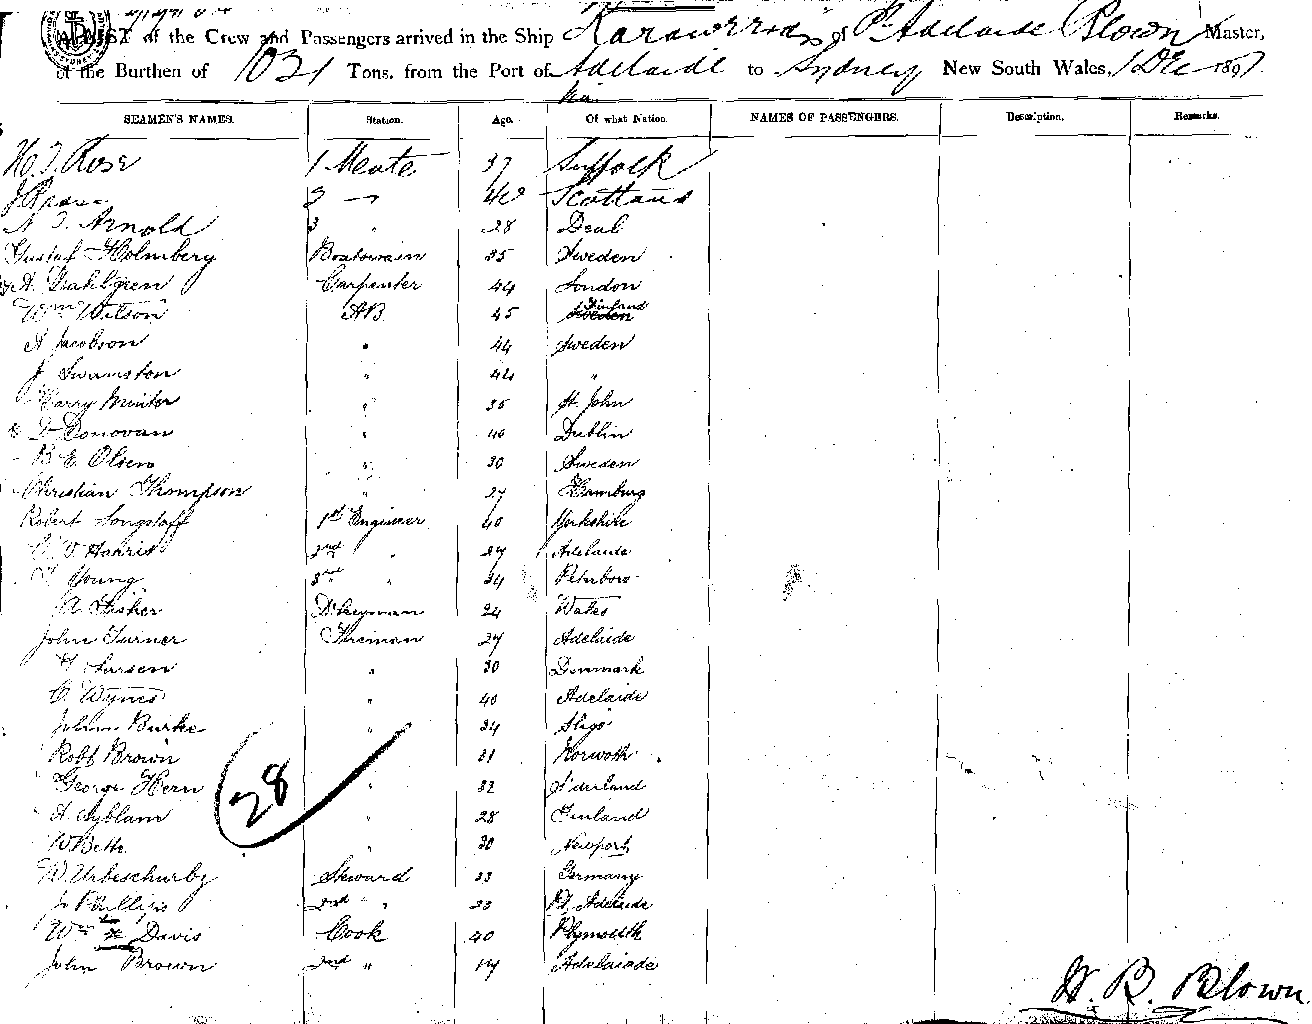 A LIST of the Crew and Passengers arrived in the Ship Karawerra of Pt Adelaide Blown Master,
of the Burthen of 1031 Tons, from the Port of Adelaide to Sydney New South Wales, 1 Dec 1897
SEAMEN'S NAMES. Station. Age. Of what Nation. NAMES OF PASSENGERS. Description. Remarks.
Rose 1 Mate 37 Suffolk
2 Scotland
Arnold 3 " 28 Deal
Gustaf Holmberg Boatswain 35 Sweden
A. Dahlgren Carpenter 44 London
Wm Wilson AB 45 Finland
A Jacobson " 44 Sweden
J Swanston " "
Harry Minter " 35 St. John
D Donovan " 40 Dublin
B E Olsen " 30 Sweden
Christian Thompson " 27 Hamburg
Robert Longstaff 1st Engineer 40 Yorkshire
Harris 2nd " 27 Adelaide
Young 3rd " 24 Peterboro
A. Fisher D'keyman 24 Wales
John Turner Fireman 27 Adelaide
Larsen " 30 Denmark
Wynes " 40 Adelaide
John Burke " 34 Sligo
Robt Brown 31
George Hern " 32
A. Nyblam " 28 Finland
W Bett " 30 Newport
W. Urbeschurby Steward 33 Germany
J. Phillips 2nd " 23 Pt. Adelaide
Wm Davis Cook 40 Plymouth
John Brown 2nd " 19 Adelaide
28
W. B. Blown